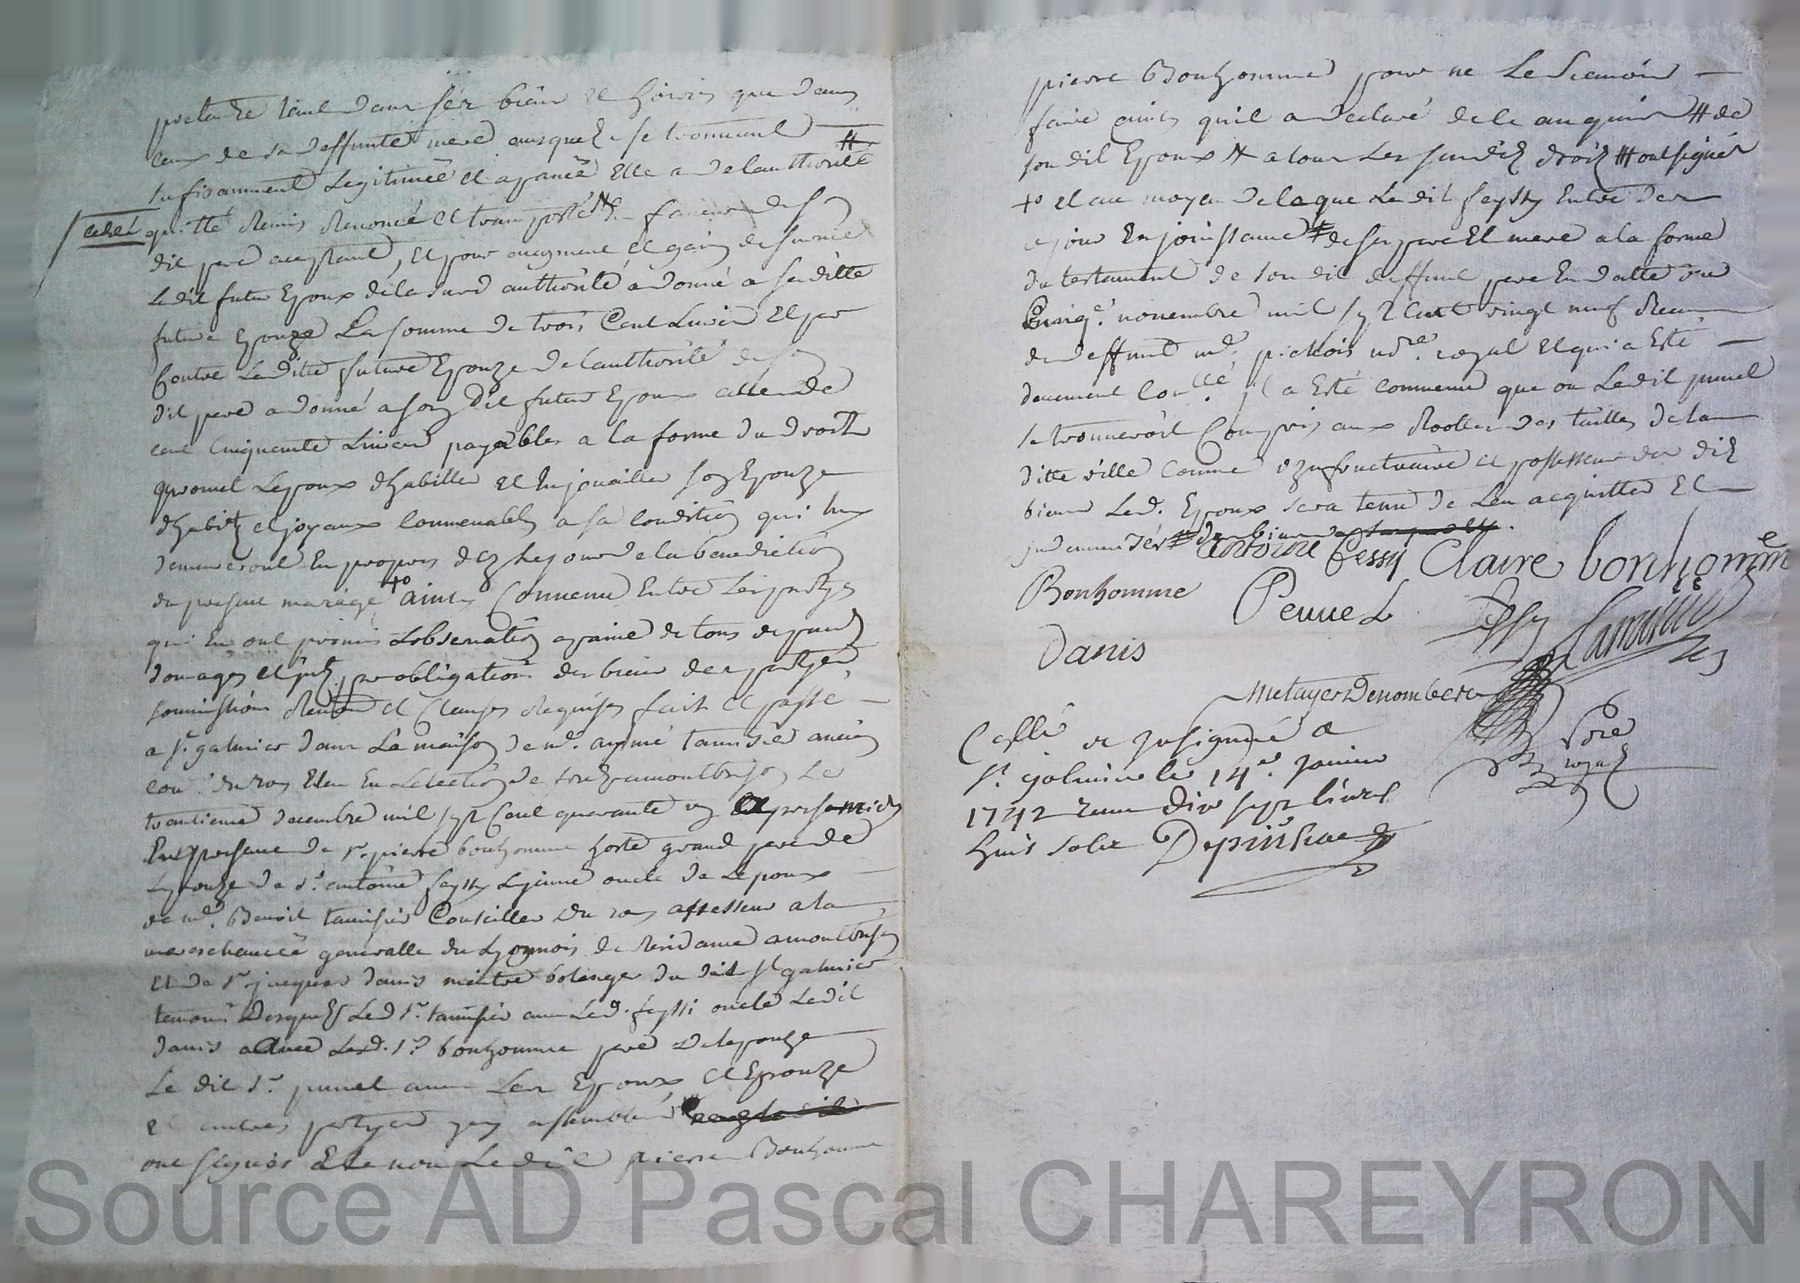 pretandre tant dans ses biens et hoirie que dans
ceux de sa deffunte mere ausquels se trouvant #
sufisamment legitimée et apanée elle a de lauthorité
cedé quitté remis renoncé et transporté # en faveur de son
dit pere acceptant, et pour augment et gain de survie
ledit futur epoux de la susd authorité a donné a saditte
future epouze la somme de trois cent livres et par
contre laditte future epouze de lauthorité de son
dit pere a donné a son dit futur epoux celle de
cent cinquante livres payables a la forme du droit
promet lepoux dhabiller et enjouailler son epouze
dhabits et joyaux convenables a sa condition qui luy
demeureront en propres dez le jour de la benediction
du present mariage +o ainsy convenu entre les partyes
qui en ont promis lobservation a paine de tous depends
domages et jnts par obligation des biens des partyes
soumissions renon et clauses requises fait et passé
a st galmier dans la maison de me aymé tamisier ancien
con. du roy elleu en lelection de montbrison le
trantieme decembre mil sept cent quarante un
en presence de sr pierre bonhomme hoste grand pere de
lepouze de sr antoine feyssy le jeune oncle de lepoux
de me Benoit tamisier conseiller du roy assesseur a la
mareschaucée generalle du lyonnois de residance a montbrison
et de sr jacques danis maitre bolanger du dit st galmier
temoins desquels led sr tamisier avec led. feyssi oncle ledit
danis avec led. sr bonhomme pere de lepouze
le dit sr punel avec les epoux et epouze
et autres partyes y assemblées
ont signés et non ledit pierre Bonhomme
pierre Bonhomme pour ne le scavoir
faire ainsy quil a declaré de ce enquis # de
son dit epoux # a tous les susdits droits # ont signés
+o et au moyen de ce que ledit feyssy entre des
ce jour en jouissance # de ses pere et mere a la forme
du testament de son dit deffunt pere en datte du
cinqe. novembre mil sept cent vingt neuf receu
de deffunt me. pichois nore. royal et qui a esté
deuement conllé il a esté convenu que ou ledit punel
se trouveroit compris aux rooles des tailles de la
ditte ville comme uzufructuaire et possesseur des dits
biens led. epoux sera tenu de len acquitter et
jndamniser # des biens
antoine Cessy Claire bonhomme
Bonhomme Peuvel
Danis
Metayer Denombera
Nore
royal
Collé et jnsignué a
st. galmier le 14e. janvier
1742 receu dix sept livres
huit sols Depinhac
Source AD Pascal CHAREYRON